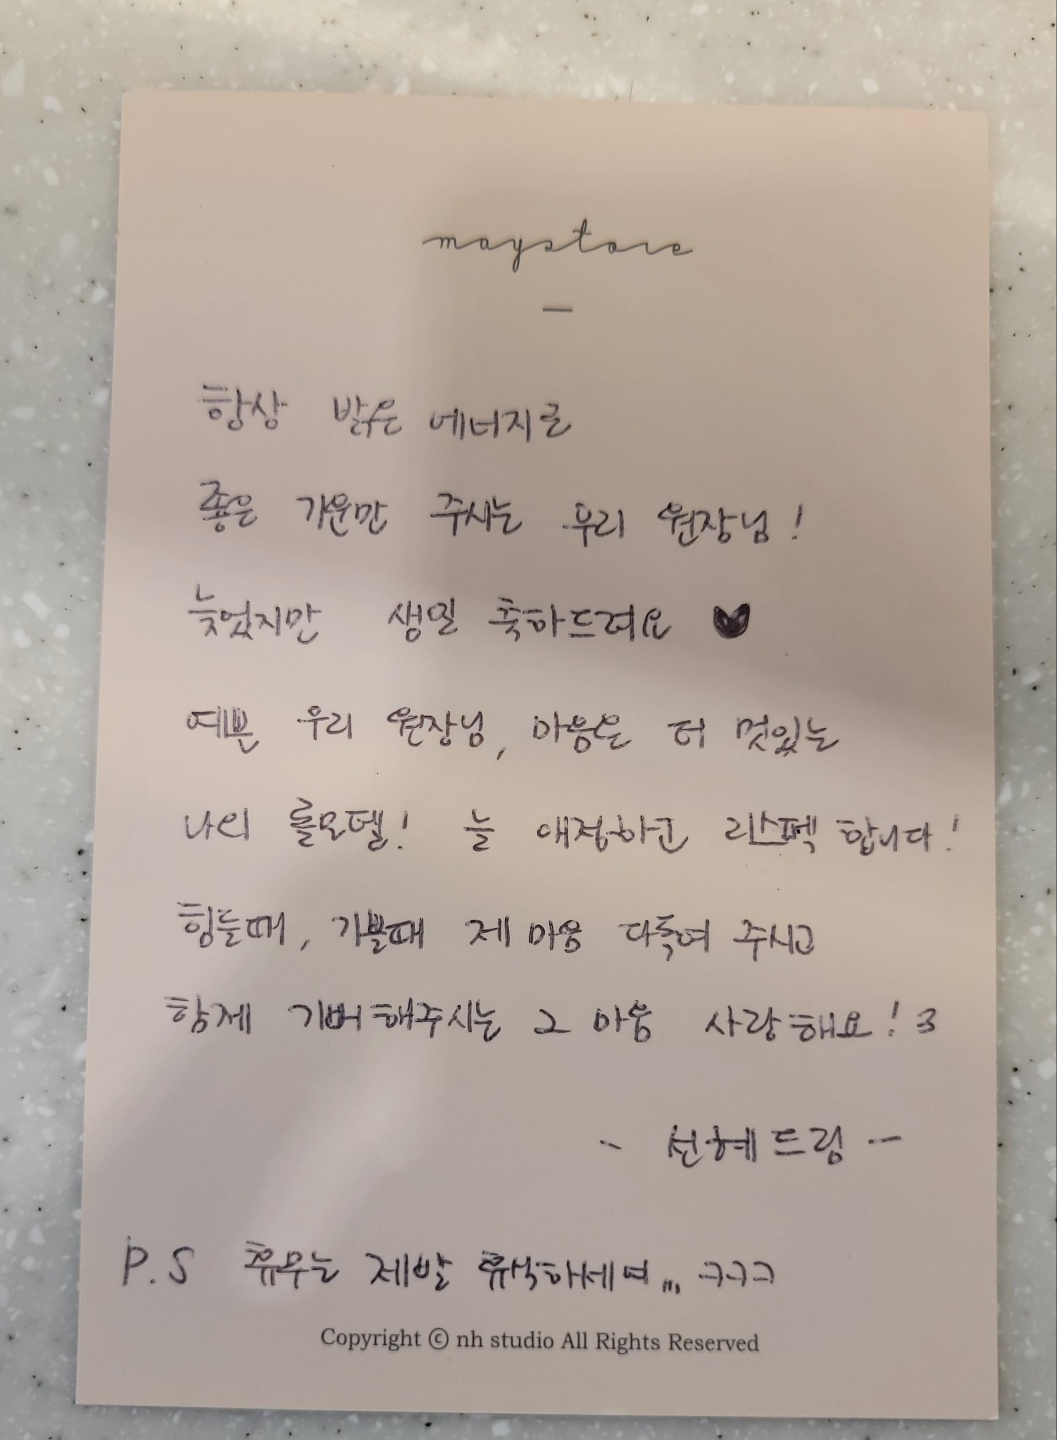 maystore
항상 밝은 에너지로
좋은 기운만 주시는 우리 원장님!
늦었지만 생일 축하드려요 ♥
예쁜 우리 원장님, 마음은 더 멋있는
나의 롤모델! 늘 애정하고 리스펙 합니다!
힘들때, 기쁠때 제 마음 다독여 주시고
항제 기버해주시는 그 마음 사랑해요! 3
~ 선혜드림 ~
P.S 휴무는 제발 휴식하세여,,, ㅋㅋㅋ
Copyright ⓒ nh studio All Rights Reserved